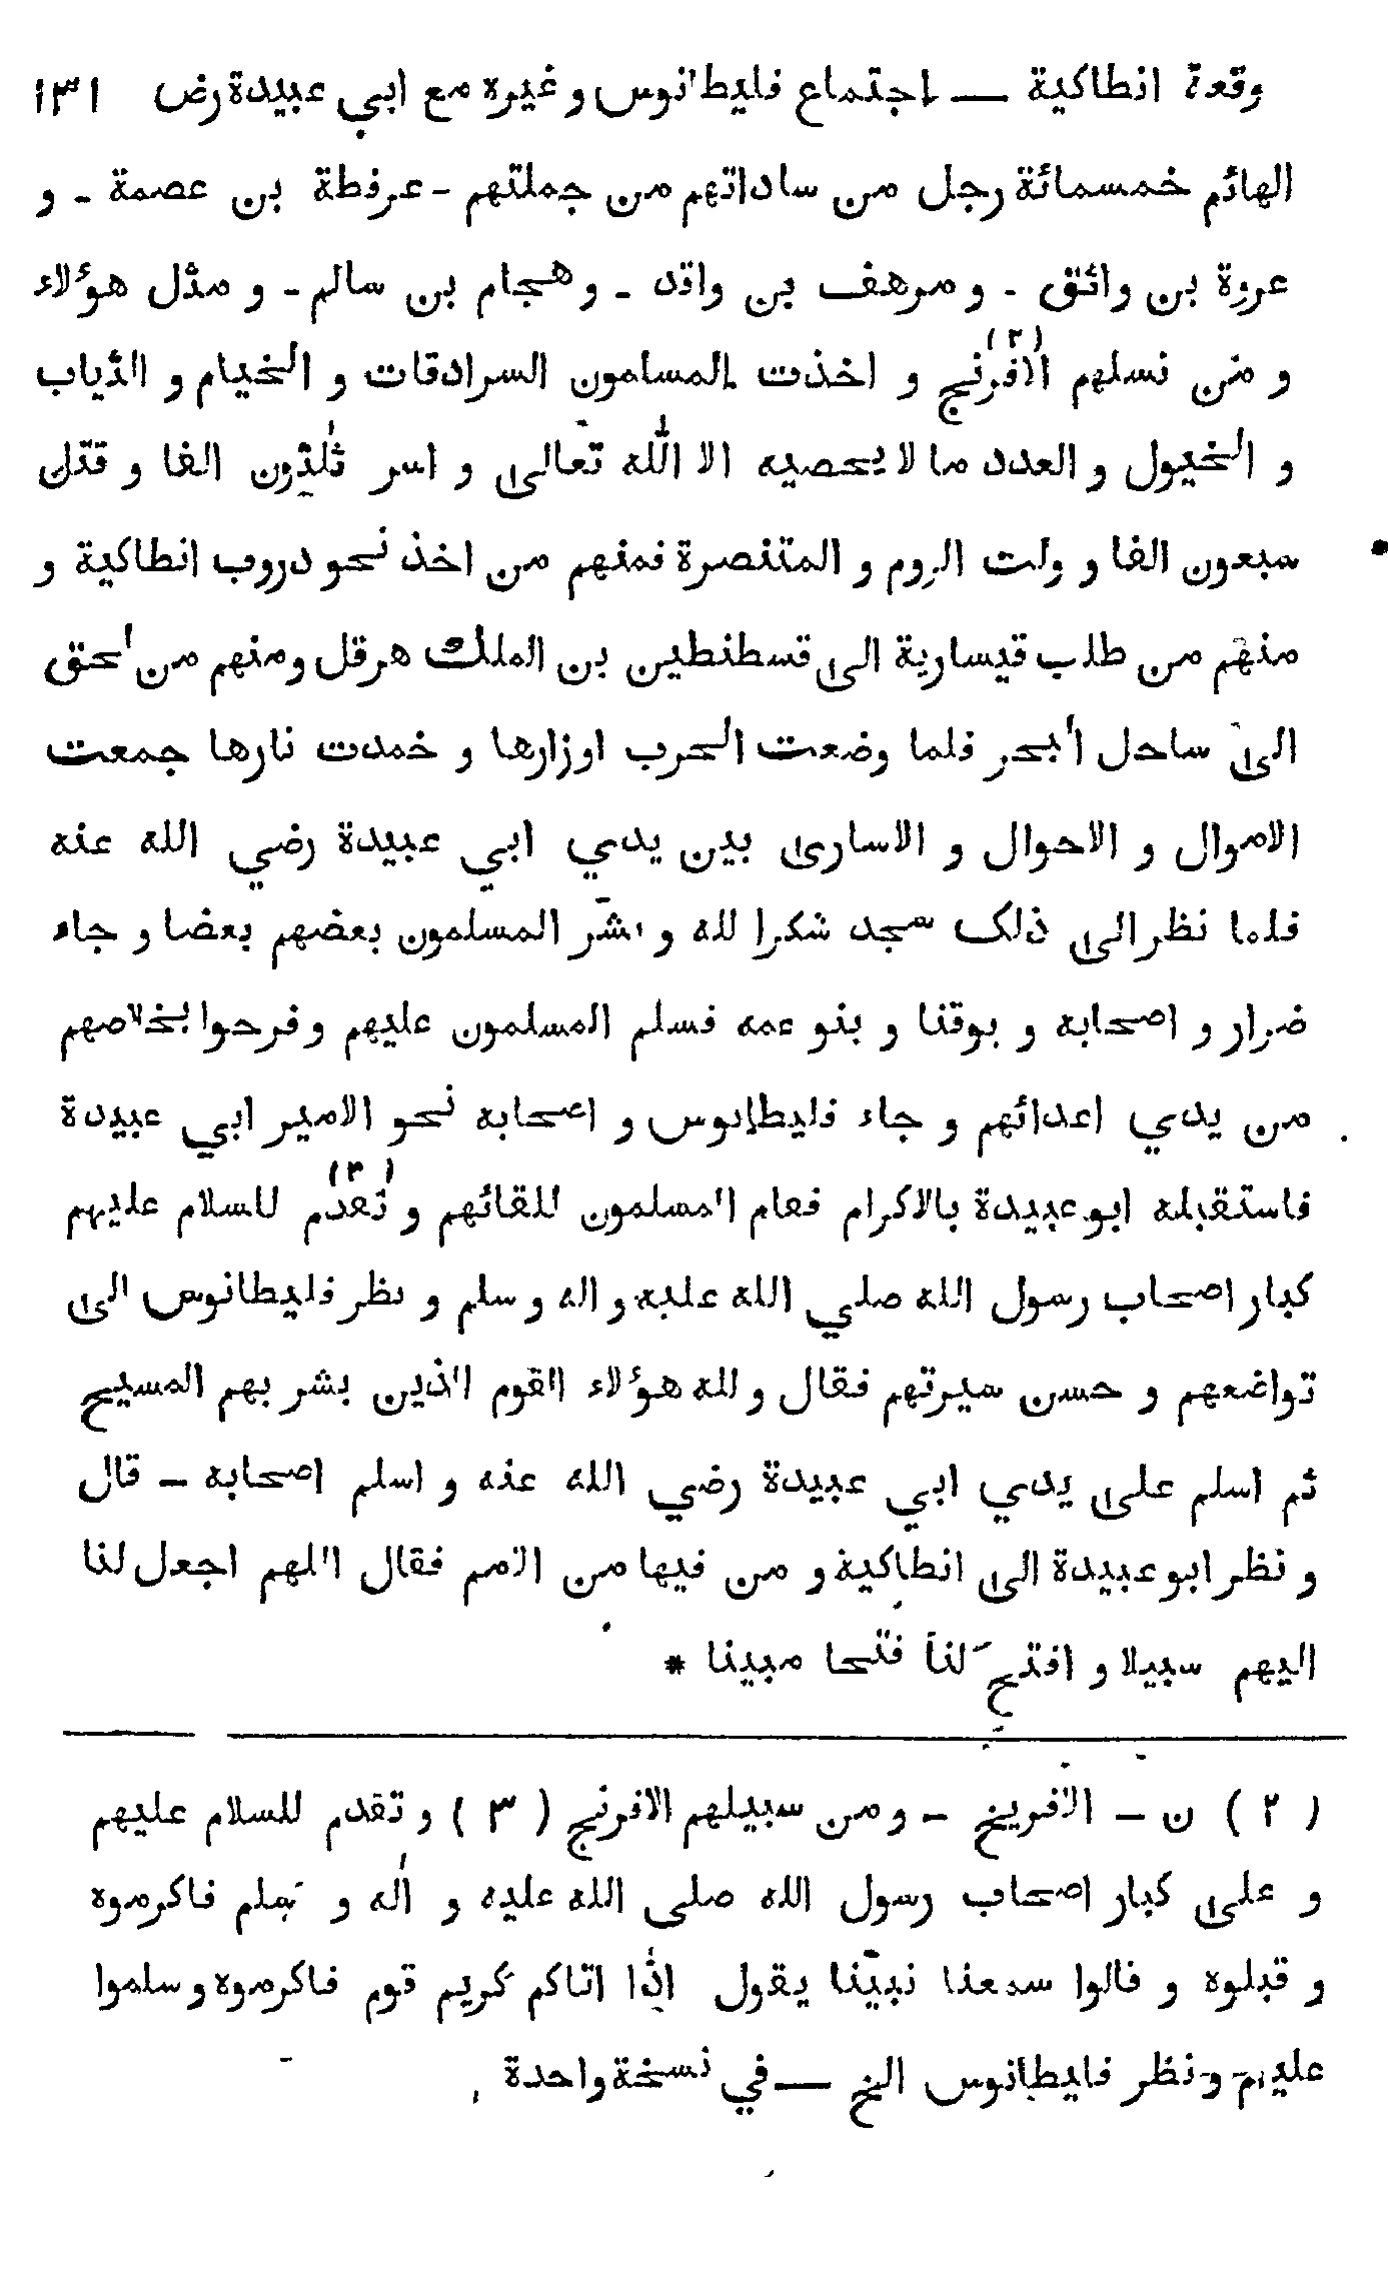 وقعة انطاكية — اجتماع فليطانوس و غيره مع ابي عبيدة رض ١٣١
الهائم خمسمائة رجل من ساداتهم من جملتهم - عرفطة بن عصمة - و
عروة بن واثق - و مرهف بن واقد - و هجام بن سالم - و مثل هؤلاء
و من نسلهم الافرنج (٢) و اخذت المسلمون السرادقات و الخيام و الثياب
و الخيول و العدد ما لا يحصيه الا الله تعالى و اسر ثلثون الفا و قتل
سبعون الفا و ولت الروم و المتنصرة فمنهم من اخذ نحو دروب انطاكية و
منهم من طلب قيسارية الى قسطنطين بن الملك هرقل و منهم من لحق
الى ساحل البحر فلما وضعت الحرب اوزارها و خمدت نارها جمعت
الاموال و الاحوال و الاسارى بين يدي ابي عبيدة رضي الله عنه
فلما نظر الى ذلك سجد شكرا لله و بشر المسلمون بعضهم بعضا و جاء
ضرار و اصحابه و يوقنا و بنو عمه فسلم المسلمون عليهم و فرحوا بخلاصهم
من يدي اعدائهم و جاء فليطانوس و اصحابه نحو الامير ابي عبيدة
فاستقبله ابو عبيدة بالاكرام فقام المسلمون للقائهم و تقدم (٣) للسلام عليهم
كبار اصحاب رسول الله صلي الله عليه و اله و سلم و نظر فليطانوس الى
تواضعهم و حسن سيرتهم فقال و لله هؤلاء القوم الذين بشر بهم المسيح
ثم اسلم على يدي ابي عبيدة رضي الله عنه و اسلم اصحابه - قال
و نظر ابو عبيدة الى انطاكية و من فيها من الامم فقال اللهم اجعل لنا
اليهم سبيلا و افتح لنا فتحا مبينا *
( ٢ ) ن - الافريخ - و من سبيلهم الافرنج ( ٣ ) و تقدم للسلام عليهم
و على كبار اصحاب رسول الله صلى الله عليه و اله و سلم فاكرموه
و قبلوه و قالوا سمعنا نبيّنا يقول اذا اتاكم كريم قوم فاكرموه و سلموا
عليهم و نظر فليطانوس الخ — في نسخة واحدة